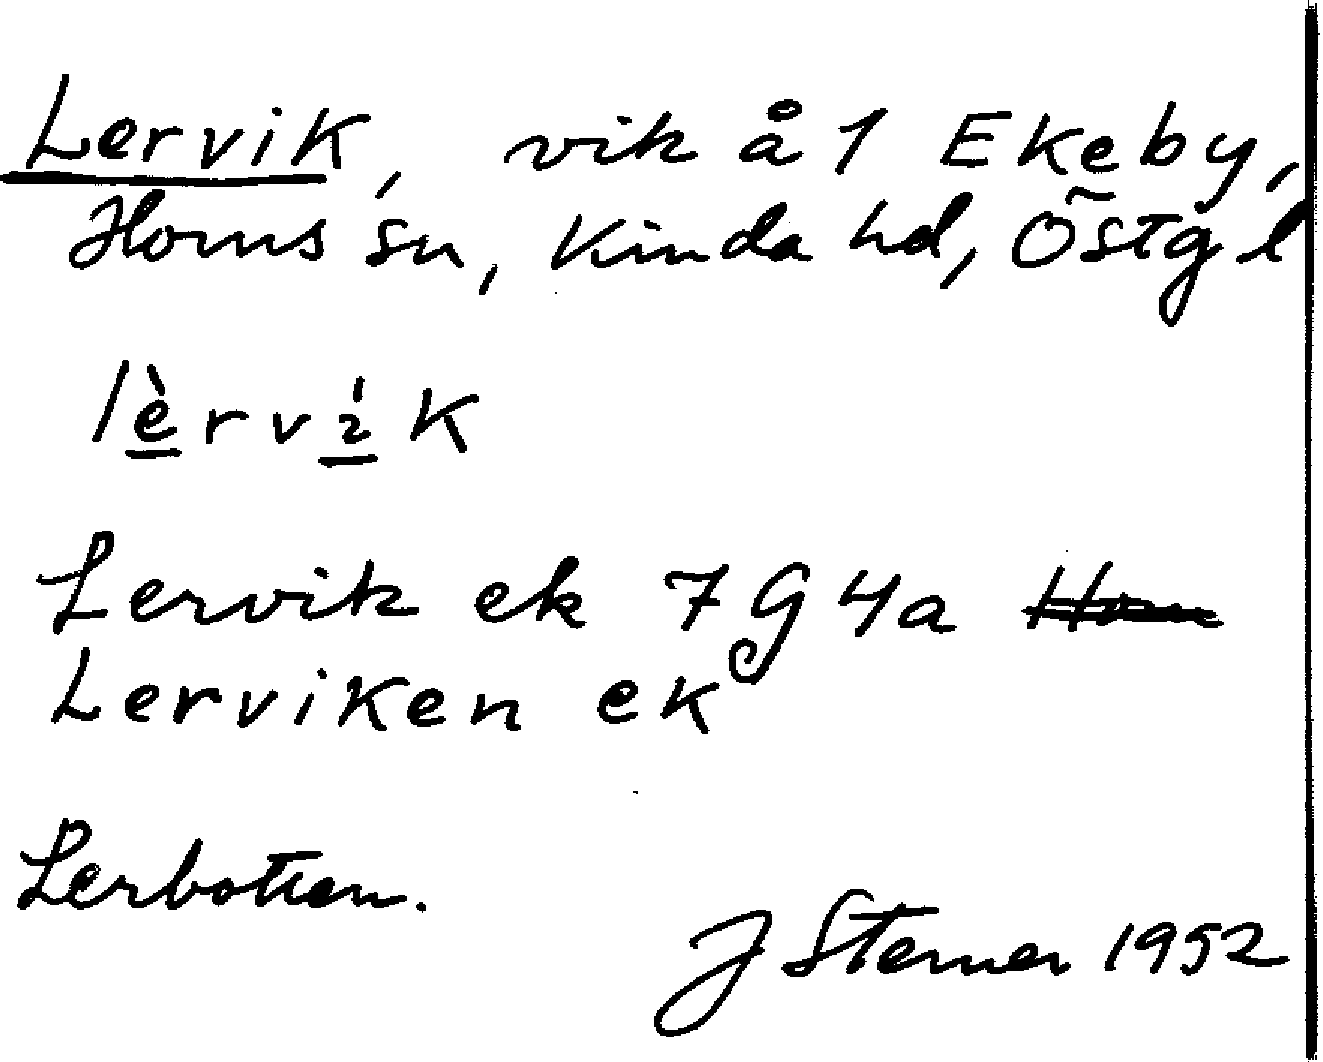 Lervik, vik å 1 Ekeby,
Horns sn, Kinda hd, Östg l
lèrvìk
Lervik ek 7 G 4a
Lerviken ek
Lerbotten.
J Sterner 1952